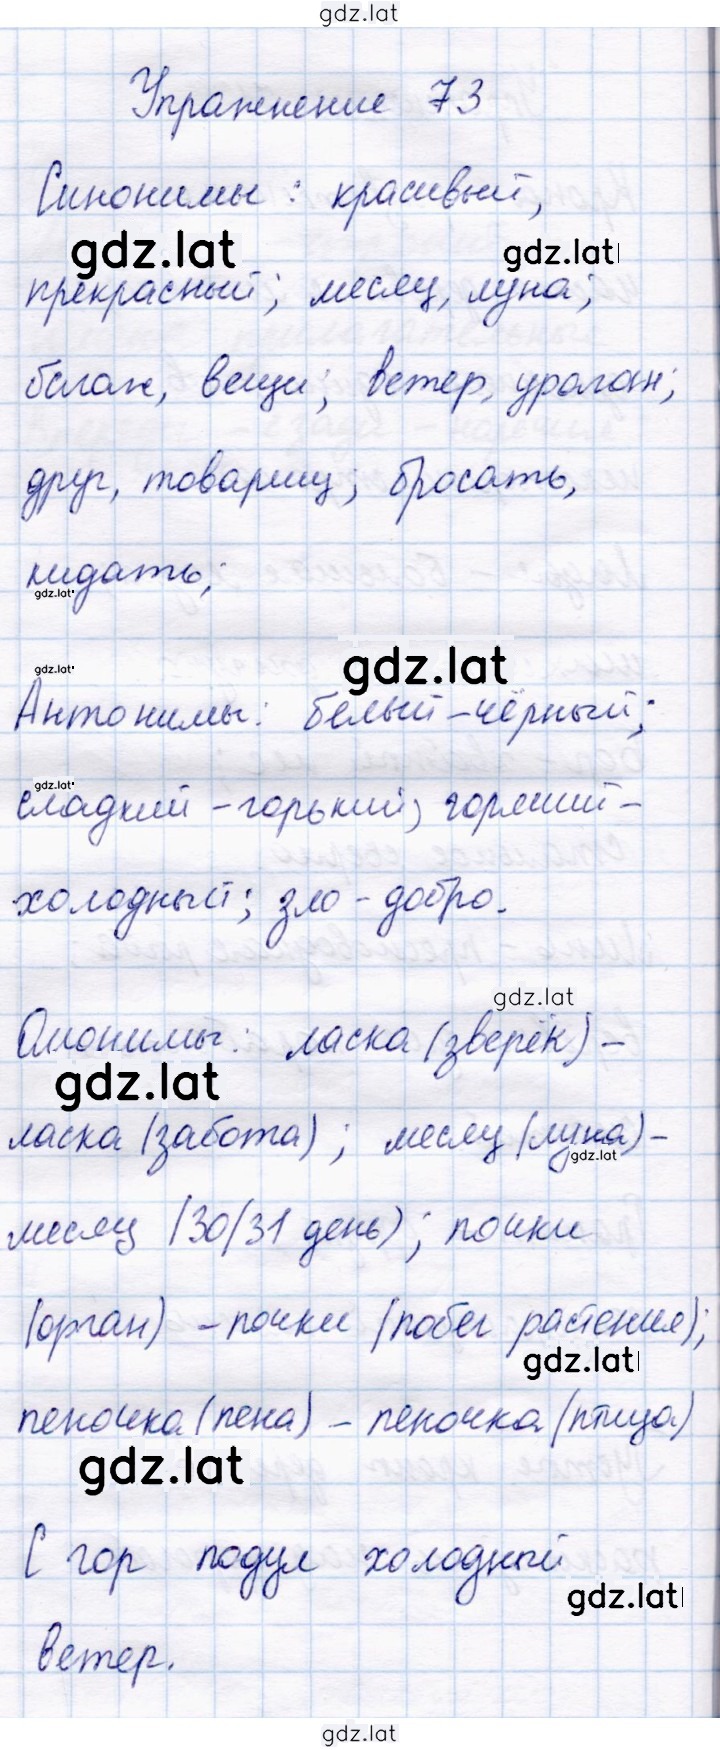 gdz.lat
Упражнение 73
Синонимы: красивый,
gdz.lat gdz.lat
прекрасный; месяц, луна;
багаж, вещи; ветер, ураган;
друг, товарищ; бросать,
кидать;
gdz.lat
gdz.lat
gdz.lat
Антонимы: белый-чёрный;
gdz.lat
сладкий-горький; горячий-
холодный; зло-добро.
gdz.lat
Омонимы: ласка (зверёк)-
gdz.lat
ласка (забота); месяц (луна)-
gdz.lat
месяц (30/31 день); почки
(орган) - почки (побег растения);
gdz.lat
пеночка (пена) - пеночка (птица)
gdz.lat
С гор подул холодный
gdz.lat
ветер.
gdz.lat